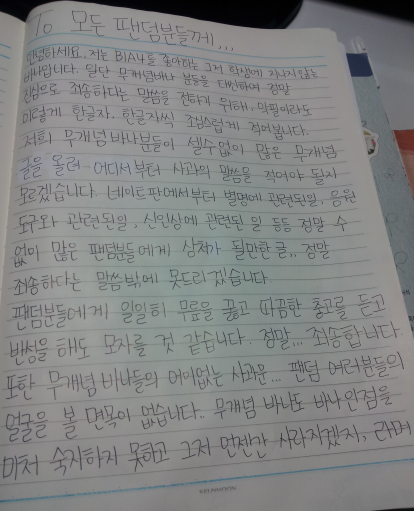 To 모든 팬덤분들께...
안녕하세요. 저는 B1A4를 좋아하는 그저 학생에 지나지 않는
바나입니다. 일단 무개념바나 분들을 대신하여 정말
진심으로 죄송하다는 말씀을 전하기 위해, 악필이라도
이렇게 한글자. 한글자씩 조심스럽게 적어봅니다.
저희 무개념 바나분들이 셀수없이 많은 무개념
글을 올려 어디서부터 사과의 말씀을 적어야 될지
모르겠습니다. 네이트판에서부터 별명에 관련된일, 응원
도구와 관련된일, 신인상에 관련된 일 등등 정말 수
없이 많은 팬덤분들에게 상처가 될만한 글.. 정말
죄송하다는 말씀밖에 못드리겠습니다.
팬덤분들에게 일일히 무릎을 꿇고 따끔한 충고를 듣고
반성을 해도 모자를 것 같습니다. 정말... 죄송합니다
또한 무개념 바나들의 어이없는 사과문... 팬덤 여러분들의
얼굴을 볼 면목이 없습니다.. 무개념 바나도 바나인점을
미처 숙지하지 못하고 그저 언젠간 사라지겠지, 라며